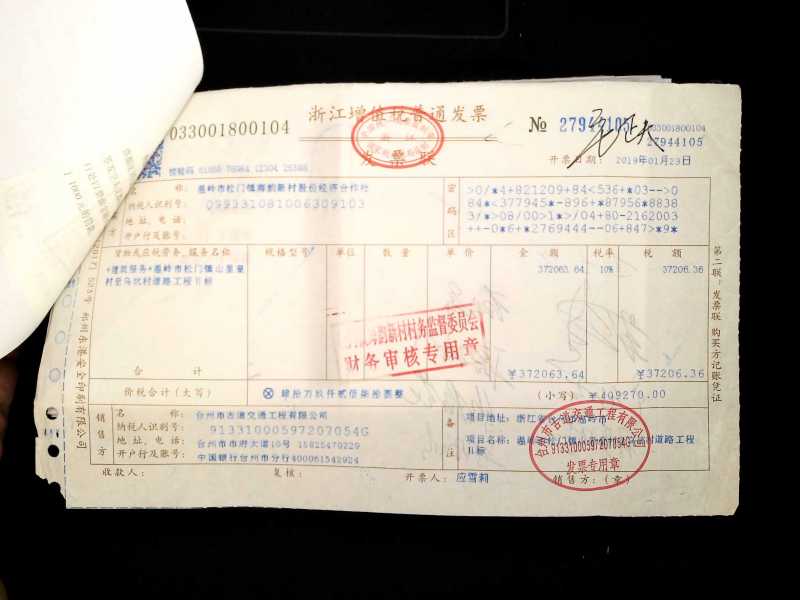 浙江增值税普通发票
发票联
033001800104
№ 27944105
033001800104
27944105
校验码
开票日期: 2019年01月23日
名 称: 温岭市松门镇海韵新村股份经济合作社
纳税人识别号:
地 址、电 话:
开户行及账号:
密码区
>0/*4+821209+84<536+*03-->0
84*<377945*-896+*87956*8838
3/*>08/00>1*>/04+80-2162003
++-0*6+*2769444--06+847>*9*
货物或应税劳务、服务名称 规格型号 单位 数量 单价 金额 税率 税额
*建筑服务*温岭市松门镇山里皇
村至乌坑村道路工程Ⅱ标
372063.64 10% 37206.36
合 计 ¥372063.64 ¥37206.36
价税合计(大写) ⊗ 肆拾万玖仟贰佰柒拾圆整 (小写) ¥409270.00
销售方
名 称: 台州市吉通交通工程有限公司
纳税人识别号: 91331000597207054G
地 址、电 话: 台州市市府大道10号 15825479229
开户行及账号: 中国银行台州市分行400061542924
备注
项目地址: 浙江省
项目名称: 温岭市松门镇
村道路工程
Ⅱ标
收款人: 复核: 开票人: 应雪莉 销售方: (章)
第二联: 发票联 购买方记账凭证
新村村务监督委员会
财务审核专用章
台州市吉通交通工程有限公司
91331000597207054G
发票专用章